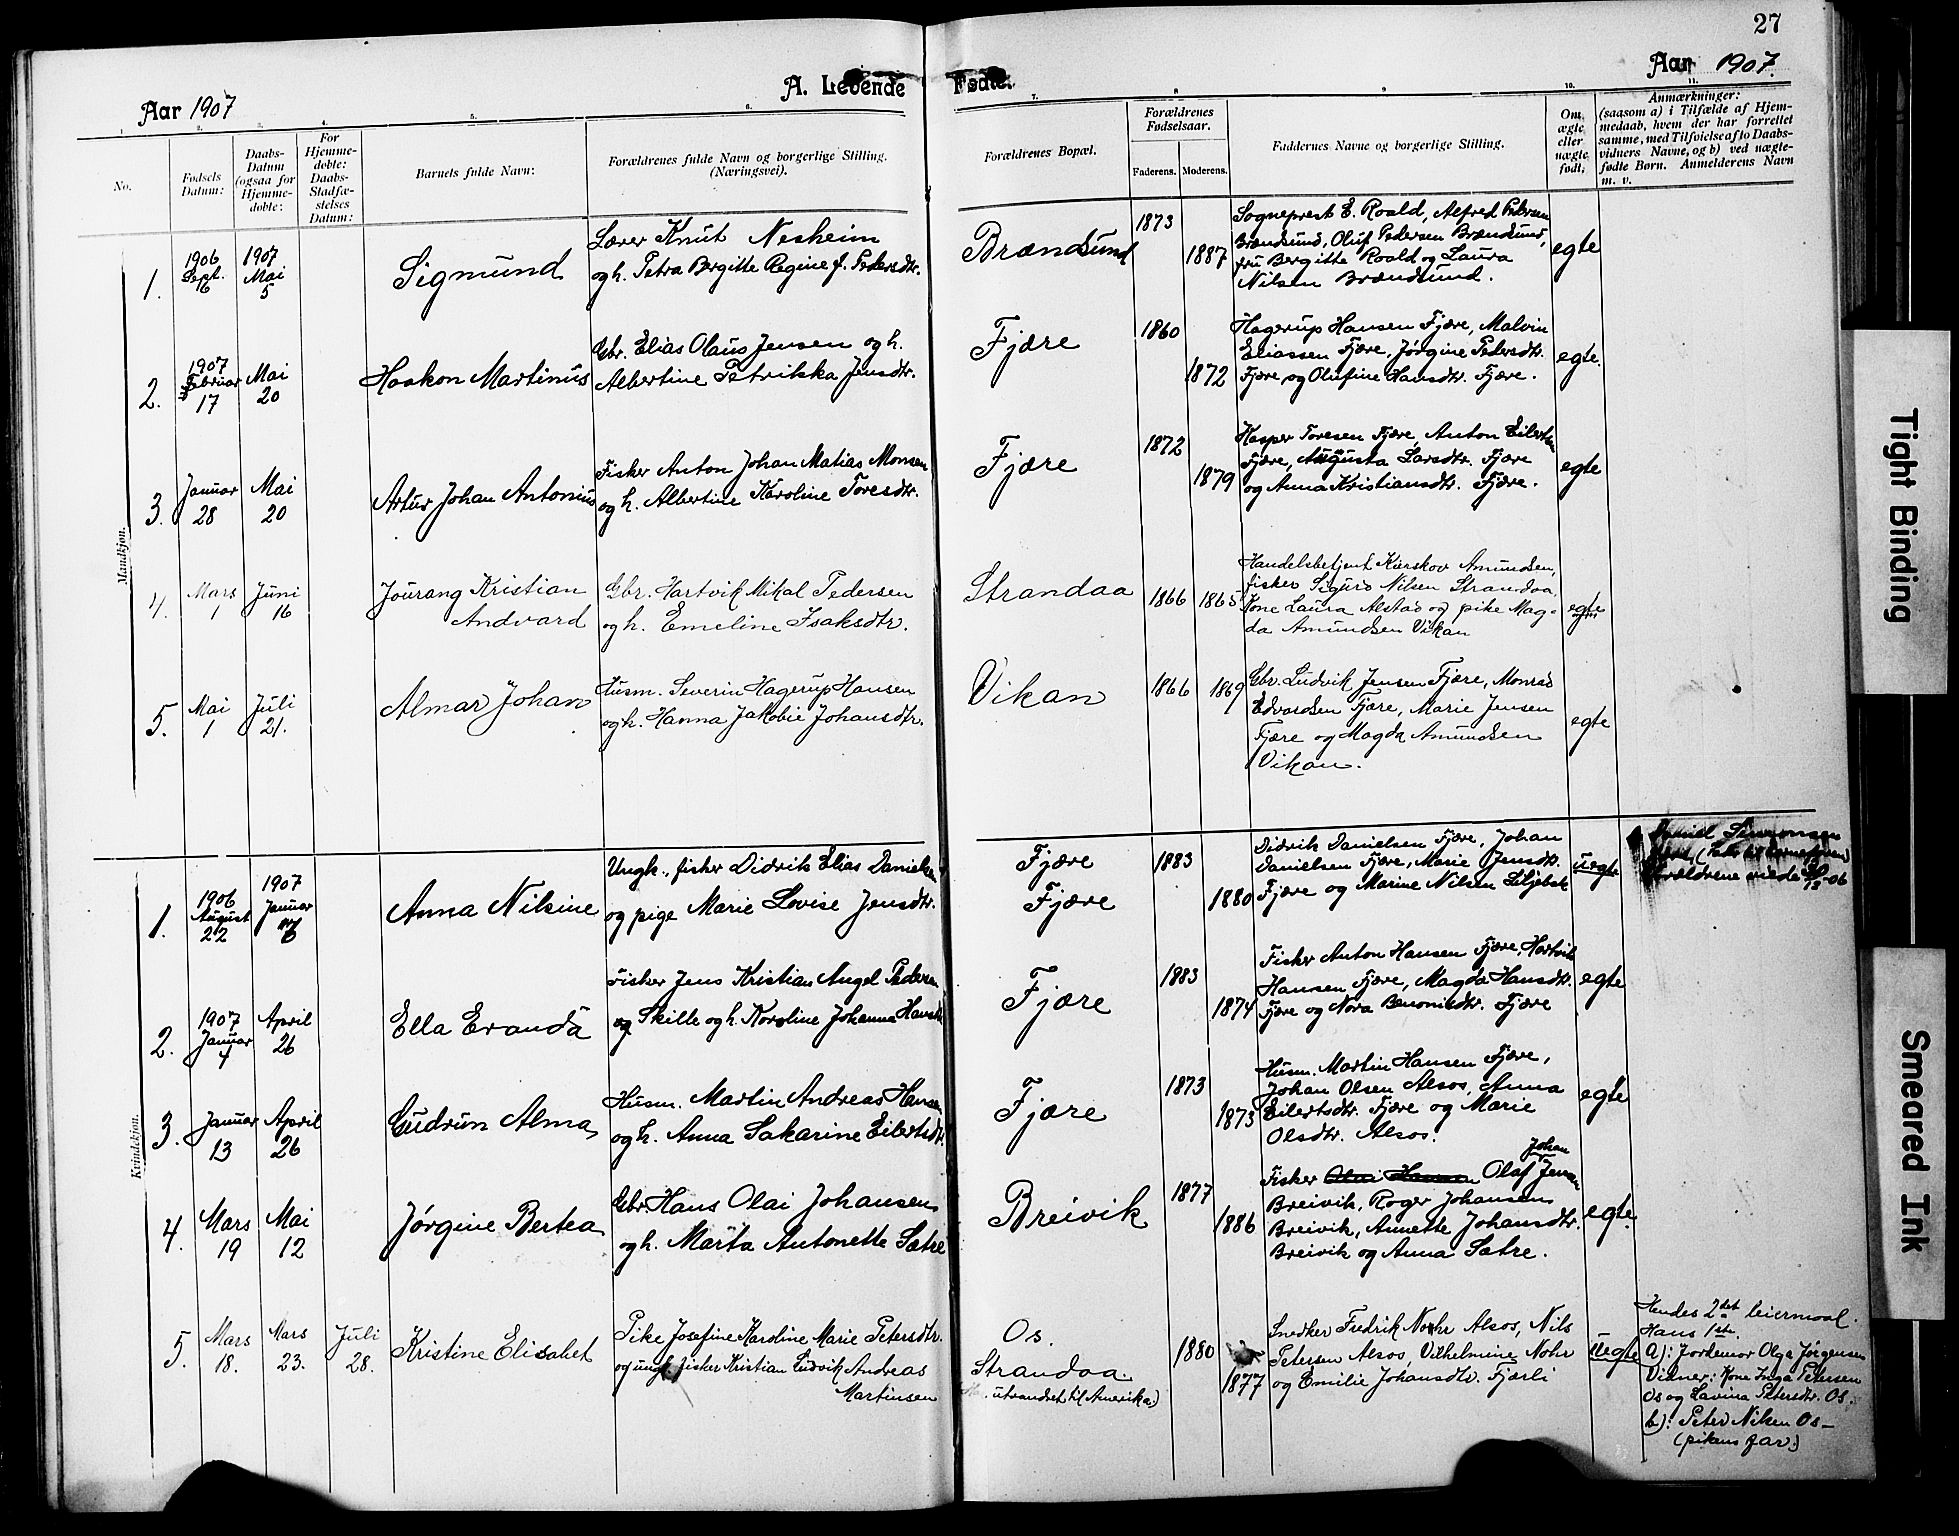 27
Aar 1907
A. Levende Fødte.
Aar 1907.
1. 2. 3. 4. 5. 6. 7. 8 9 10. 11.
No.
Fødsels Datum:
Daabs-
Datum
(ogsaa for
Hjemme-
døbte:
For
Hjemme-
døbte:
Daabs-
Stadfæ-
stelses
Datum:
Barnets fulde Navn:
Forældrenes fulde Navn og borgerlige Stilling.
(Næringsvei).
Forældrenes Bopæl.
Forældrenes
Fødselsaar.
Faderens. Moderens.
Faddernes Navne og borgerlige Stilling.
Om
ægte
eller
uægte
født.
Anmærkninger:
(saasom a) i Tilfælde af Hjem-
medaab, hvem der har forrettet
samme, med Tilføielse af to Daabs-
vidners Navne, og b) ved uægte-
fødte Børn. Anmelderens Navn
m. v.
Mandkjøn.
1.
1906
Sept.
6
1907
Mai
5
Sigmund
Lærer Knut Nesheim
og h. Petra Bergitte Regine f. Pedersdtr.
Brændsund
1873
1887
Sogneprest E. Roald, Alfred Pedersen
Brændsund, Oluf Pedersen Brændsund,
fru Bergitte Roald og Laura
Nilsen Brændsund.
egte
2.
1907
Februar
17
Mai
20
Haakon Martinus
Gbr. Elias Olaus Jensen og h.
Albertine Petrikka Jensdtr.
Fjære
1860
1872
Hagerup Hansen Fjære, Malvin
Eliassen Fjære, Jørgine Pedersdtr.
Fjære og Olufine Hansdtr. Fjære.
egte.
3.
Januar
28
Mai
20
Artur Johan Antonius
Fisker Anton Johan Matias Monsen
og h. Albertine Karoline Toresdtr.
Fjære
1872
1879
Kasper Toresen Fjære, Anton Eilertsen
Fjære, Augusta Larsdtr. Fjære
og Anna Kristiansdtr. Fjære.
egte
4.
Mars
1
Juni
16
Jourang Kristian
Andvard
Gbr. Hartvik Mikal Pedersen
og h. Emeline Isaksdtr.
Strandaa
1866
1865
Handelsbetjent Kurskov Amundsen,
fisker Sigurd Nilsen Strandaa,
Kone Laura Alstad og pike Mag-
da Amundsen Vikan
egte
5.
Mai
1
Juli
21.
Almar Johan
Husm. Severin Hagerup Hansen
og h. Hanna Jakobie Johansdtr.
Vikan
1866
1869
Gbr. Ludvik Jensen Fjære, Monrad
Edvardsen Fjære, Marie Jensen
Fjære og Magda Amundsen
Vikan.
egte
Kvindekjøn.
1.
1906
August
22
1907
Januar
6
Anna Nilsine
Ungk., fisker Didrik Elias Danielsen
og pige Marie Lovise Jensdtr.
Fjære
Fjære
1883
1880
Didrik Danielsen Fjære, Johan
Danielsen Fjære, Marie Jensdtr.
Fjære og Marine Nilsen Liljebak
uegte
Daniel Simonsen
Forældrene viede 12-06
2.
1907
Januar
4
April
26
Ella Evanda
Fisker Jens Kristian Angel Pedersen
og Skille og h. Karoline Johanna Hansdtr
Fjære
1883
1874
Fisker Anton Hansen Fjære, Hartvik
Hansen Fjære, Magda Hansdtr.
Fjære og Nora Benonisdtr. Fjære
egte
3.
Januar
13
April
26
Gudrun Alma
Husm. Martin Andreas Hansen
og h. Anna Sakarine Eilertsdtr.
Fjære
1873
1873
Husm. Martin Hansen Fjære,
Johan Olsen Alsos, Anna
Eilertsdtr. Fjære og Marie
Olsdtr. Alsos.
egte
4.
Mars
19
Mai
12
Jørgine Bertea
Gbr Hans Olai Johansen
og h. Marta Antonette Sætre
Breivik
1877
1886
Johan
Fisker Olai Hansen Olaf Jensen
Breivik, Roger Johansen
Breivik, Annette Johansdtr.
Breivik og Anna Sætre.
egte.
5.
Mars
18.
Mars
23.
Juli
28.
Kristine Elisabet
Pike Josefine Karoline Marie Petersdtr.
og ungk. fisker Kristian Ludvik Andreas
Martinsen
Os.
Strandaa.
utvandret til Amerika)
1880
1877
Snedker Fredrik Nohr Alsos, Nils
Petersen Alsos, Vilhelmine Nohr
og Emilie Johansdtr. Fjærli
Uegte
Hendes 2det leiermaal.
Hans 1ste.
a): Jordemor Olga Jørgensen
Vidner: Kone Inga Petersen
Os og Lavina Petersdtr. Os.
b): Peter Nilsen Os-
(pikens far.)
Tight Binding
Smeared Ink